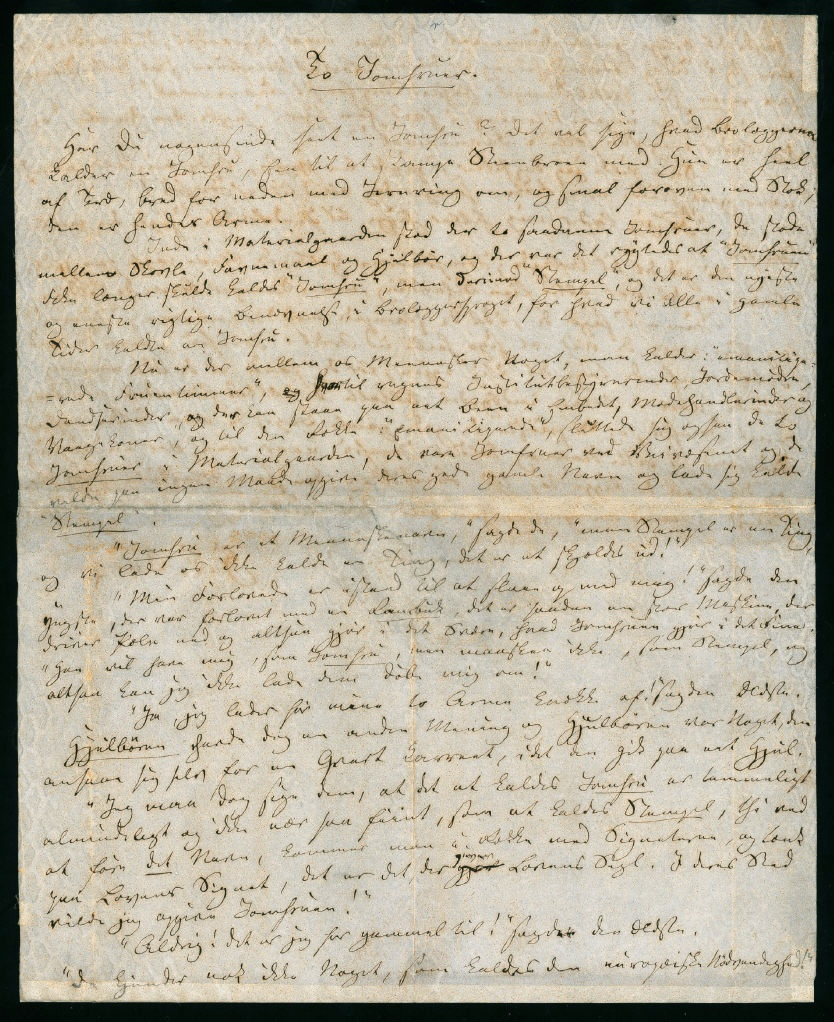 To Jomfruer.
Har Du nogensinde seet en Jomfru? det vil sige, hvad Brolæggerne
kalder en Jomfru, En til at stampe Steenbroen med. Hun er heel
af Træ, bred for neden med Jernring om, og smal foroven med Stok,
den er hendes Arme.
Inde i Materialgaarden stod der to saadanne Jomfruer, de stode
mellem Skovle, Favnemaal og Hjulbør, og der var det rygtedes at "Jomfruen"
ikke længer skulde kaldes "Jomfru", men derimod "Stempel", og det er den nyeste
og eneste rigtige Benævnelse, i Brolæggersproget, for hvad vi Alle i gamle
Tider kaldte en Jomfru.
Nu er der mellem os Mennesker Noget, man kalder: "emancipe=
=rede Fruentimmer", hvortil regnes Institutbestyrerinder, Jordemødre,
Dandserinder, der kan staae paa eet Been i Embedet, Modehandlerinder og
Vaagekoner, og til den Række "Emanciperede", sluttede sig ogsaa de to
Jomfruer i Materialgaarden, de vare Jomfruer ved Veivæsenet og de
vilde paa ingen Maade opgive deres gode gamle Navn og lade sig kalde
"Stempel".
"Jomfru er et Menneskenavn," sagde de, "men Stempel er en Ting,
og vi lade os ikke kalde en Ting, det er at skjeldes ud!"
"Min Forlovede er istand til at slaae op med mig!" sagde den
yngste, der var forlovet med en Rambuk, det er saadan en stor Maskine, der
driver Pæle ned og altsaa gjør i det Svære, hvad Jomfruen gjør i det Fine.
"Han vil have mig, som Jomfru, men maaskee ikke, som Stempel, og
altsaa kan jeg ikke lade dem døbe mig om!"
"Ja, jeg lader før mine to Arme knække af!" sagde den Ældste.
Hjulbøren havde dog en anden Mening og Hjulbøren var Noget, den
ansaae sig selv for en Qvart Karreet, idet den gik paa eet Hjul.
"Jeg maa dog sige dem, at det at kaldes Jomfru er temmeligt
almindeligt og ikke nær saa fiint, som at kaldes Stempel, thi ved
at føre det Navn, kommer man i Række med Signeterne, og tænk
paa Lovens Signet, det er det der giver Lovens Segl. I deres Sted
vilde jeg opgive Jomfruen!"
"Aldrig! det er jeg for gammel til!" sagde den Ældste.
"De kjender nok ikke Noget, som kaldes den europæiske Nødvendighed!"